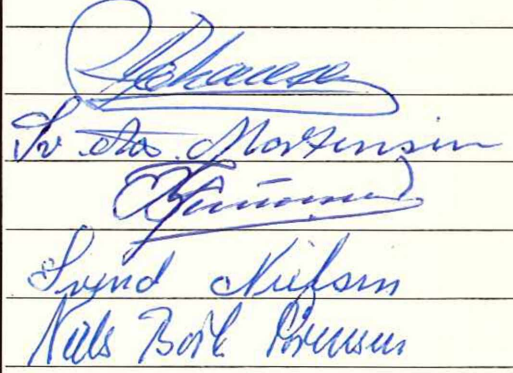 Johansen
Sv. Aa. Mortensen
Svend Nielsen
Niels Boik Sørensen